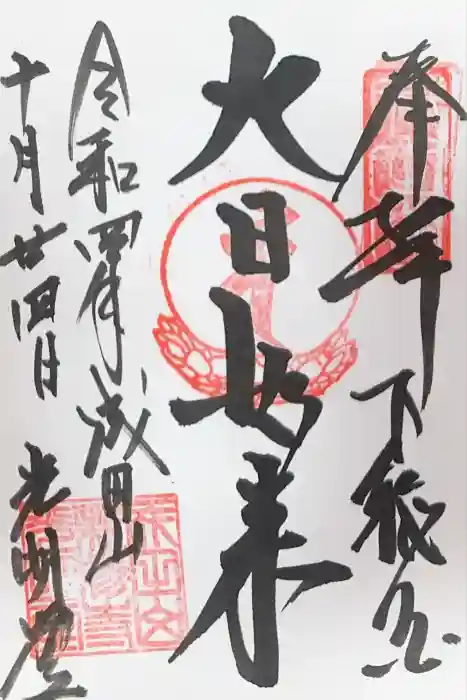 奉拝 下総國
大日如来
令和四年 成田山
十月廿四日 光明堂